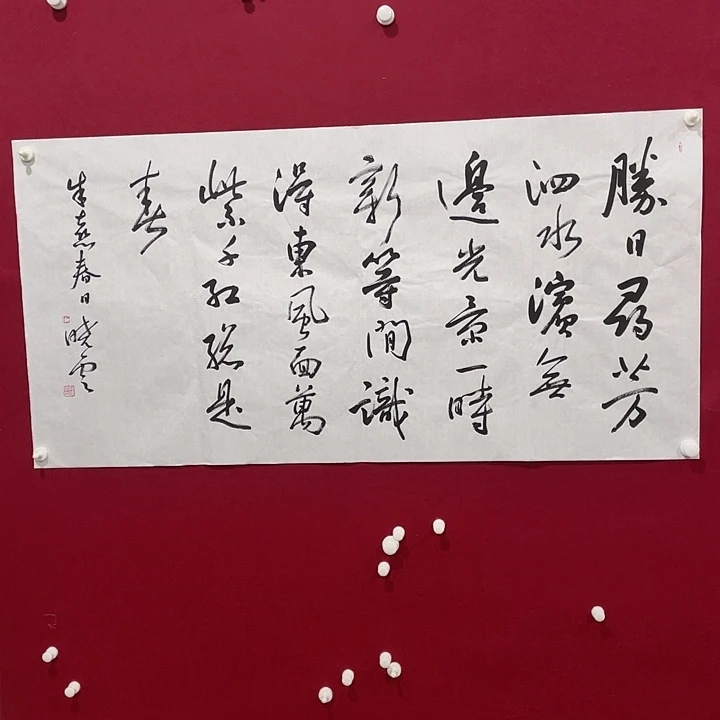 勝日尋芳
泗水濱無
邊光景一時
新等閒識
得東風面萬
紫千紅總是
春
朱熹春日 曉雲